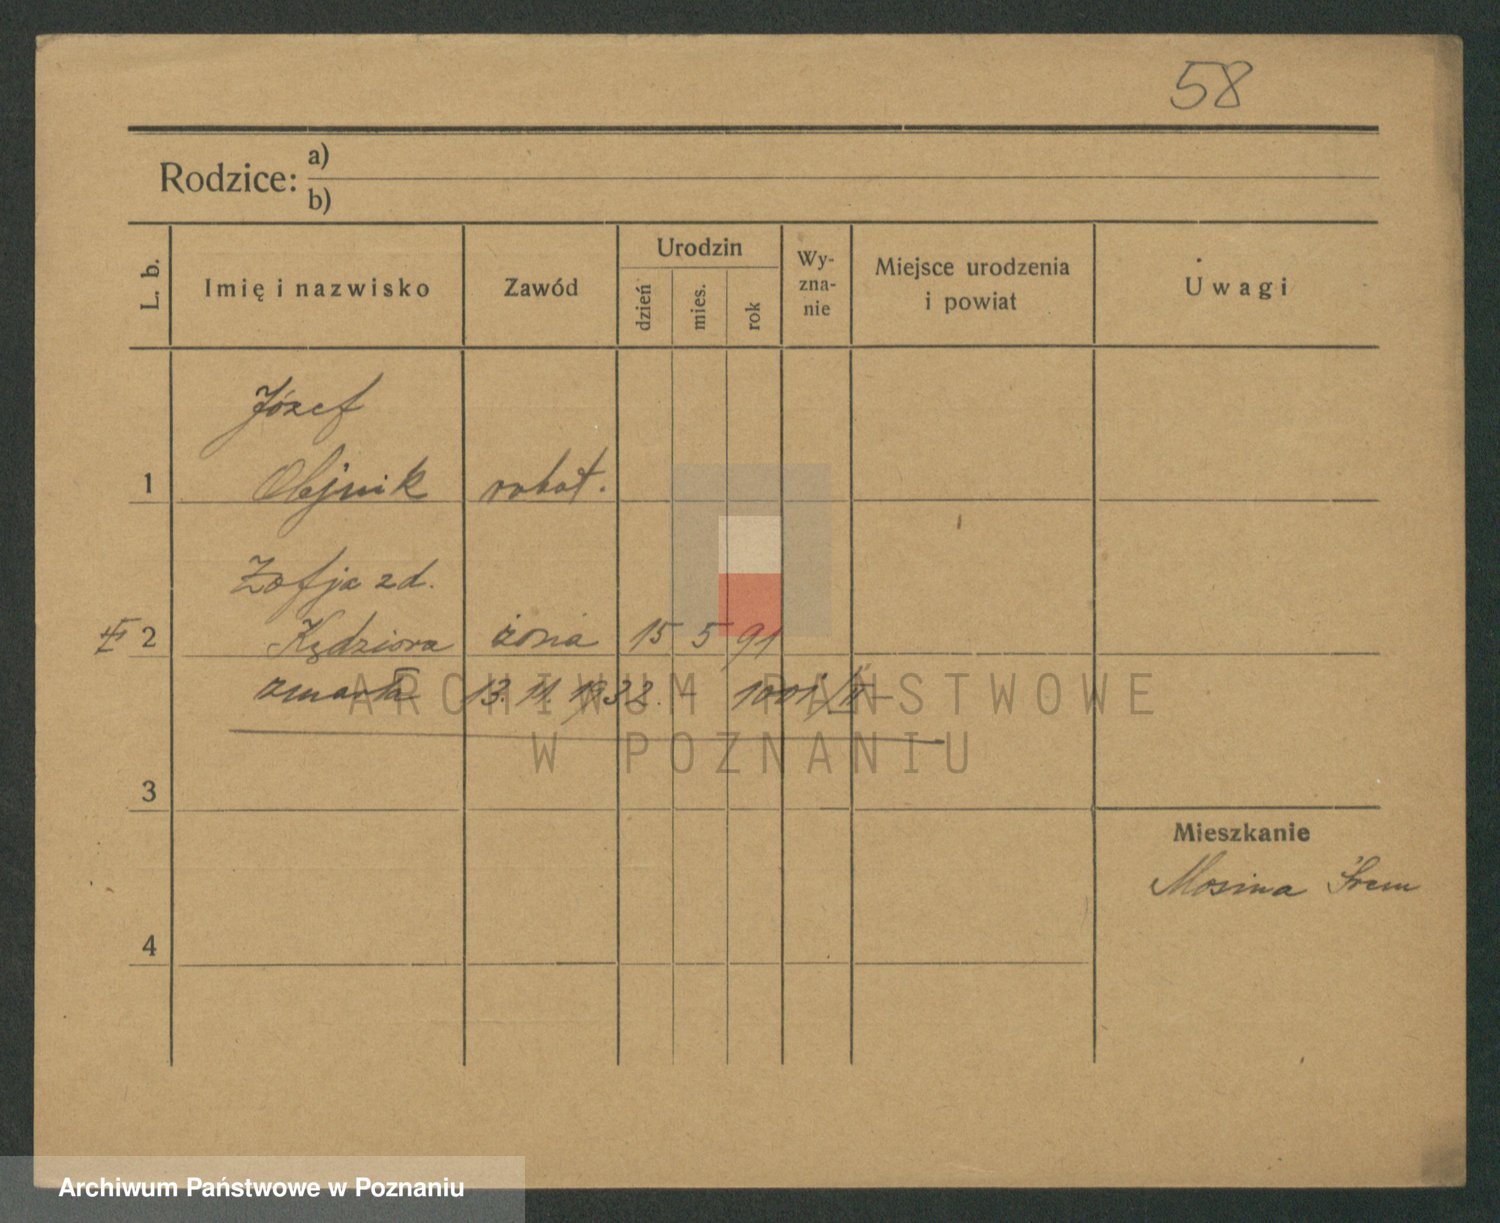 58
Rodzice: a)
b)
L. b. Imię i nazwisko Zawód Urodzin dzień mies. rok Wy-zna-nie Miejsce urodzenia i powiat Uwagi
Józef
1 Olejnik robot.
Zofja zd.
2 Kędziora żona 15 5 91
zmarła 13. 11. 1932. 1001/II
ARCHIWUM PAŃSTWOWE
W POZNANIU
3
Mieszkanie
Mosina Śrem
4
Archiwum Państwowe w Poznaniu